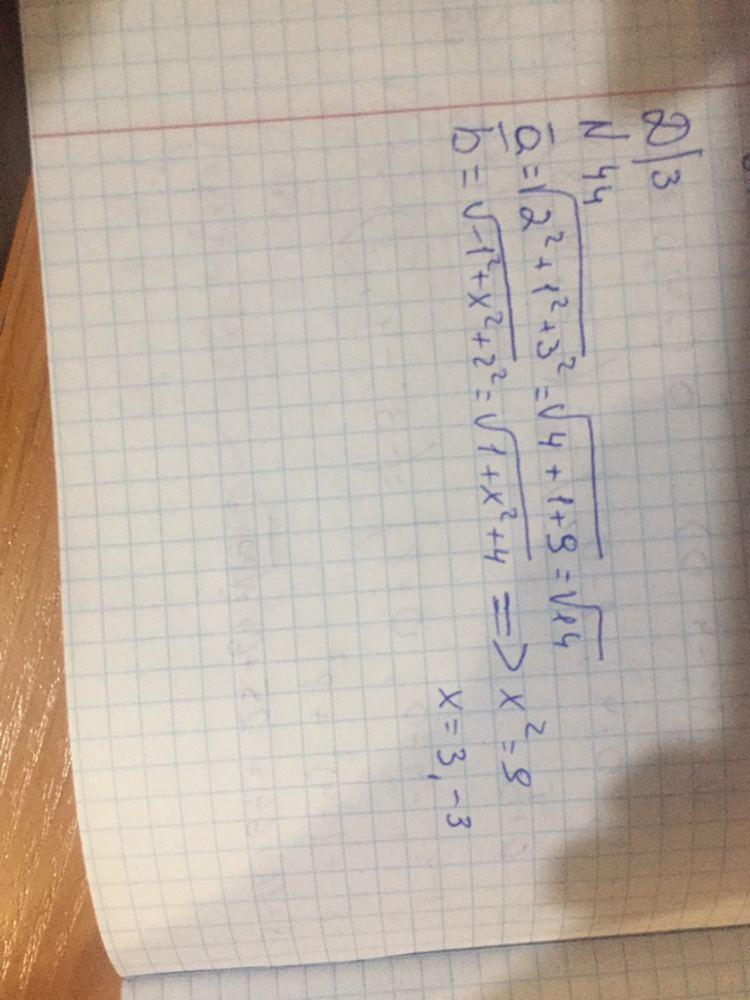 Д/З
N 44
a̅ = √2² + 1² + 3² = √4 + 1 + 9 = √14
b̅ = √-1² + x² + 2² = √1 + x² + 4 => x² = 9
x = 3, -3